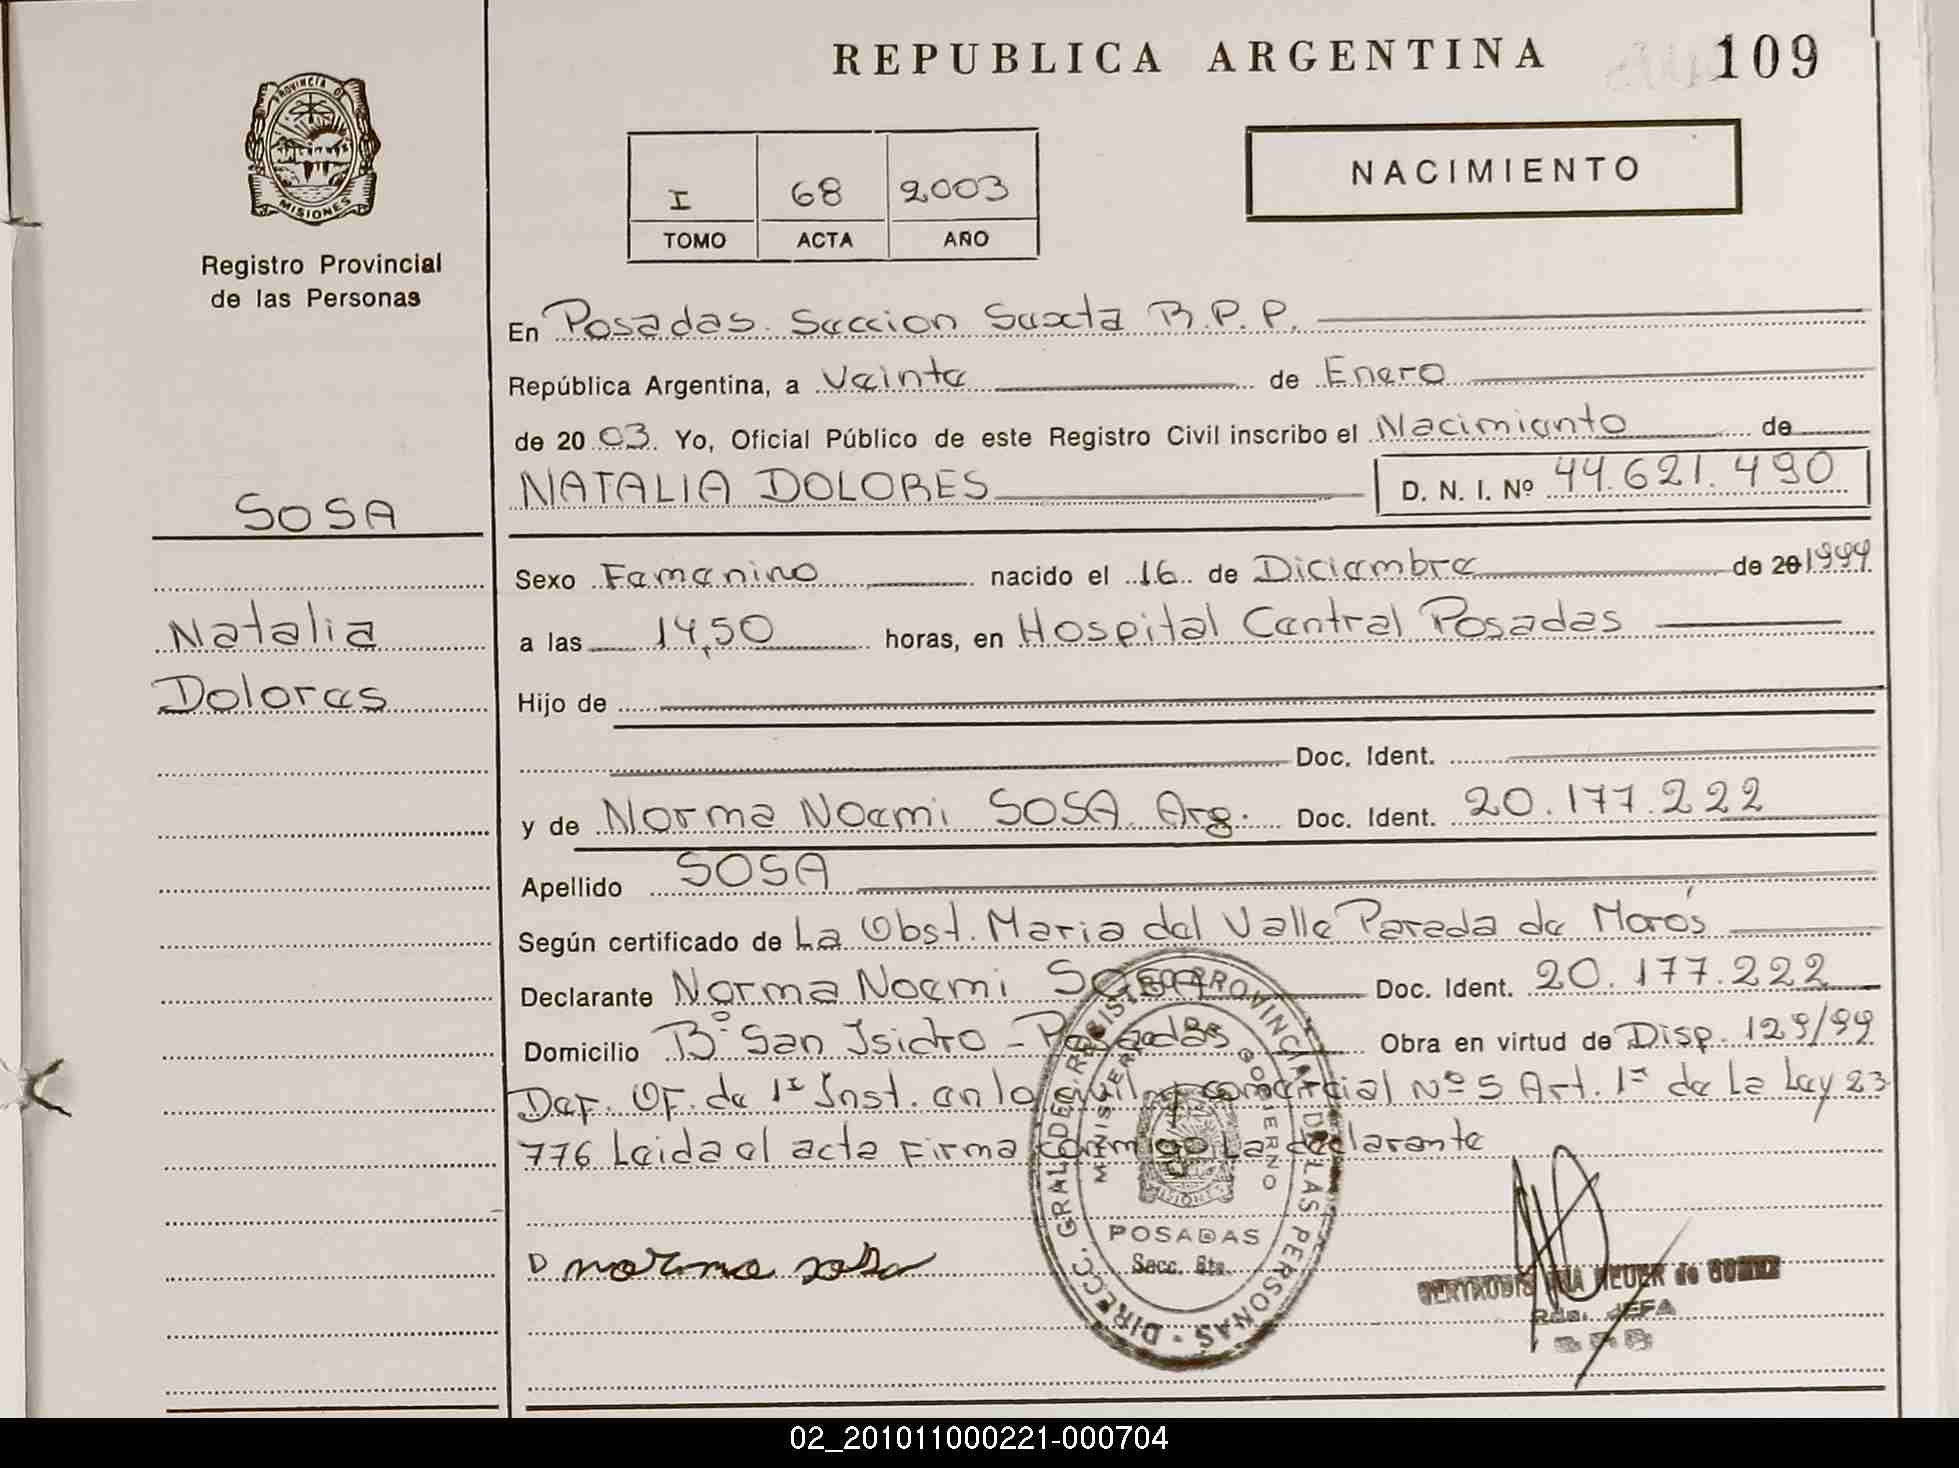 REPUBLICA ARGENTINA
109
PROVINCIA D
MISIONES
Registro Provincial
de las Personas
I 68 2003
TOMO ACTA AÑO
NACIMIENTO
En Posadas. Seccion Sexta R.P.P.
República Argentina, a Veinte de Enero
de 20 03. Yo, Oficial Público de este Registro Civil inscribo el Nacimiento de
NATALIA DOLORES D. N. I. Nº 44.621.490
SOSA
Natalia
Dolores
Sexo Femenino nacido el 16 de Diciembre de 20 1999
a las 14,50 horas, en Hospital Central Posadas
Hijo de
Doc. Ident.
y de Norma Noemi SOSA. Arg. Doc. Ident. 20.177.222
Apellido SOSA
Según certificado de La Obst. Maria del Valle Pereda de Morós
Declarante Norma Noemi Sosa Doc. Ident. 20.177.222
Domicilio Bº San Isidro - Posadas Obra en virtud de Disp. 129/99
Def. Of. de 1ª Inst. en lo Civil y comercial Nº 5 Art. 1º de la Ley 23
776 Leida el acta Firma conmigo La declarante
DIRECC. GRAL DE REGISTRO PROVINCIAL DE LAS PERSONAS
MINISTERIO GOBIERNO
MISIONES
POSADAS
Secc. 6ta.
D norma sosa
GERTRUDIS ANA HEUER de GOMEZ
JEFA
02_201011000221-000704